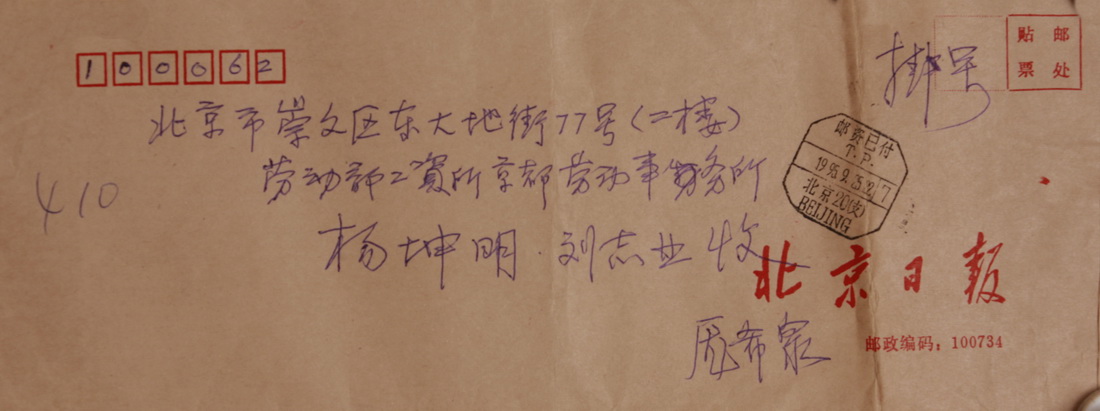 100062
贴邮
票处
挂号
北京市崇文区东大地街77号(二楼)
劳动部工资所京都劳动事务所
410
杨坤明·刘志业收
邮资已付
T.P.
北京20(支)
BEIJING
北京日报
希泉
邮政编码:100734